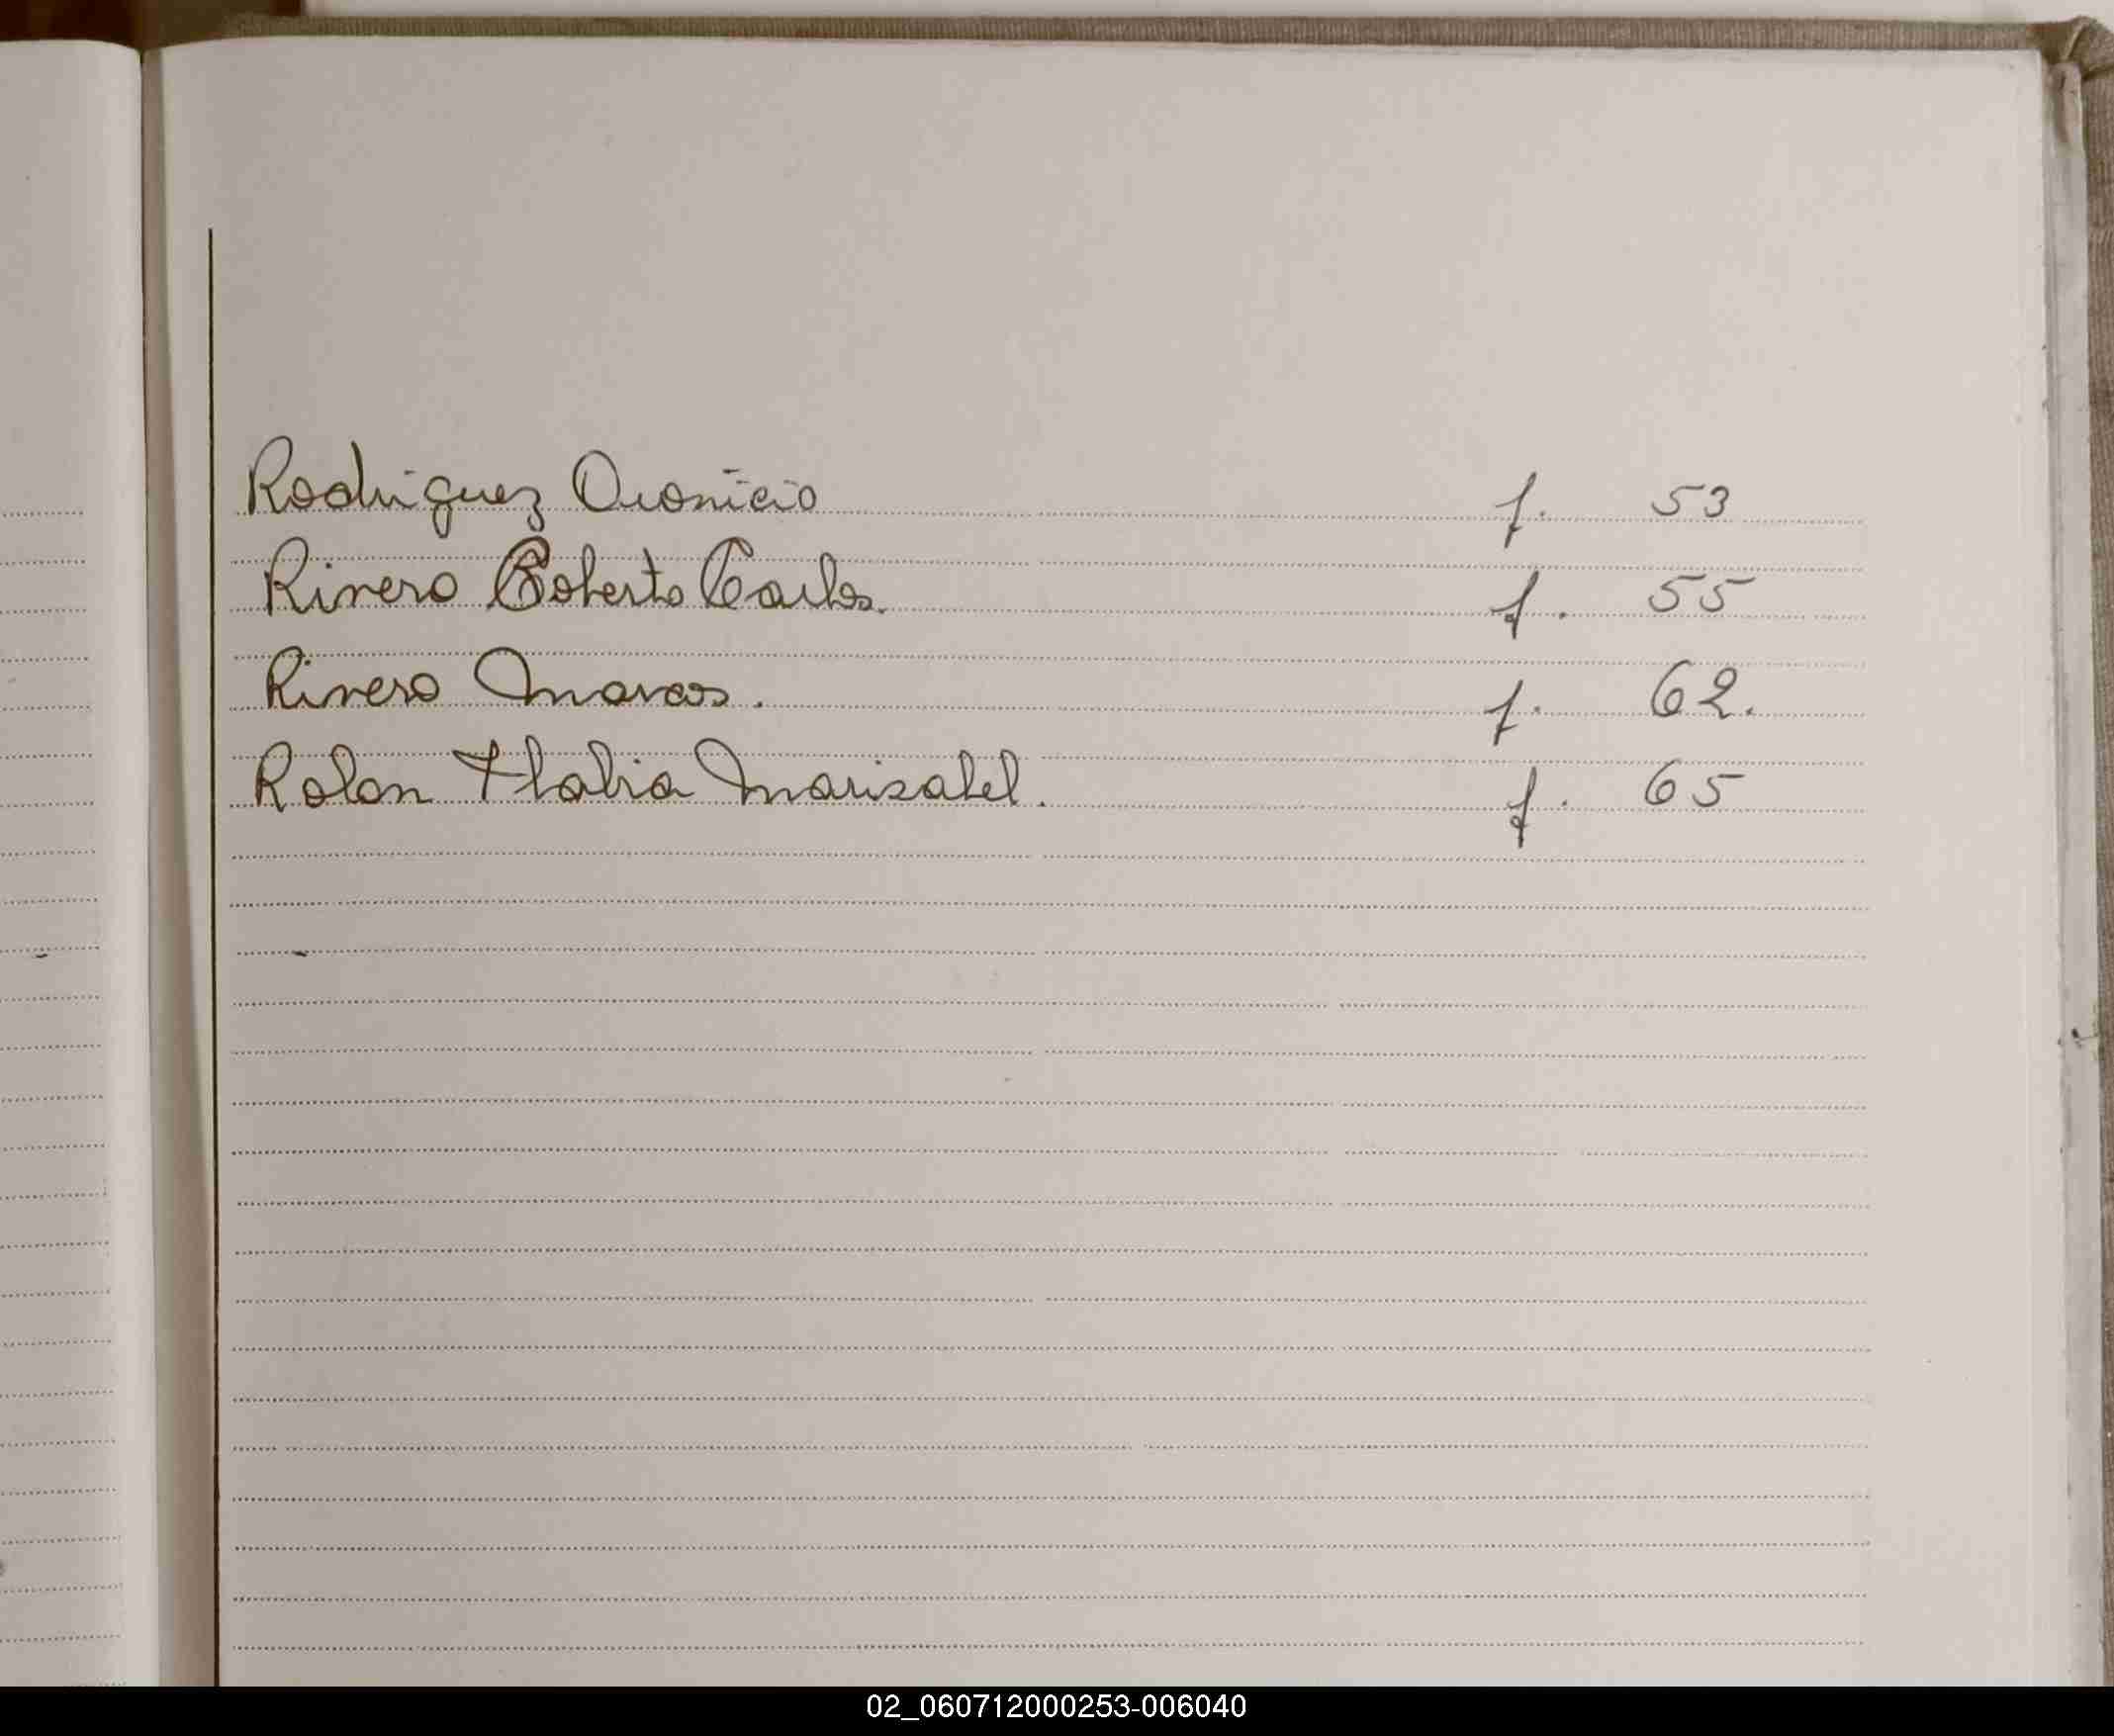 Rodriguez Dionicio f. 53
Rivero Roberto Carlos. f. 55
Rivero Marcos. f. 62.
Rolon Flabia Marisabel. f. 65
02_060712000253-006040